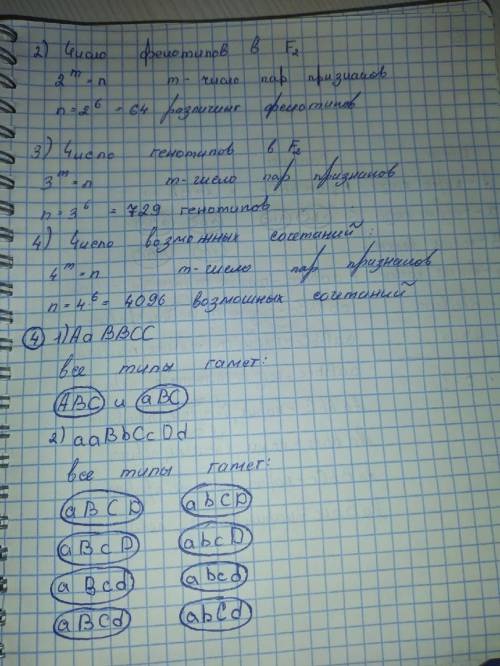 2) Число фенотипов в F₂
2ᵐ = n m - число пар признаков
n = 2⁶ = 64 различных фенотипов
3) Число генотипов в F₂
3ᵐ = n m - число пар признаков
n = 3⁶ = 729 генотипов
4) Число возможных сочетаний:
4ᵐ = n m - число пар признаков
n = 4⁶ = 4096 возможных сочетаний
④ 1) AaBBCC
все типы гамет:
ABC и aBC
2) aaBbCcDd
все типы гамет:
aBCD abCD
aBcD abcD
aBcd abcd
aBCd abCd